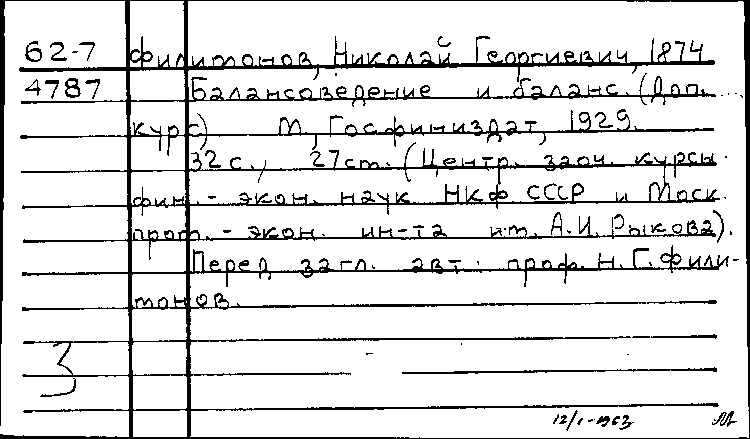 62-7 Филимонов, Николай Георгиевич, 1874
4787 Балансоведение и баланс. (Доп.
курс) М., Госфиниздат, 1929.
32 с., 27 см. (Центр. заоч. курсы
фин.-экон. наук НКФ СССР и Моск.
пром.-экон. ин-та им. А.И. Рыкова).
Перед загл. авт.: проф. Н.Г. Фили-
монов.
3
12/I-1963